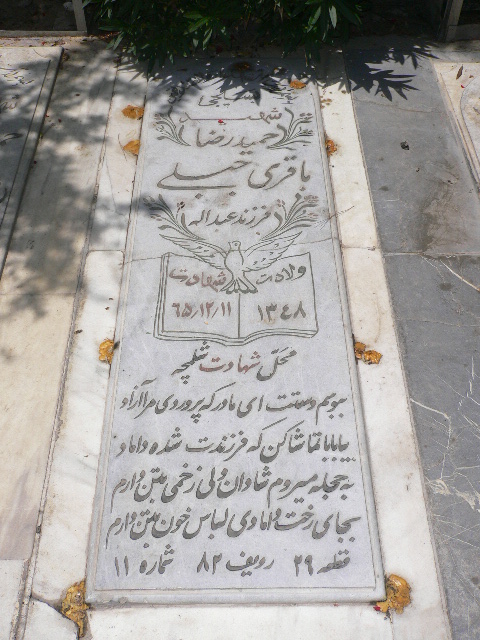 شهید
حمیدرضا
باقری جبلی
فرزند عبداله
ولادت شهادت
۱۳۴۸ ۶۵/۱۲/۱۱
محل شهادت شلمچه
ببوسم دستت ای مادر که پروردی مرا آزاد
بیا بابا تماشا کن که فرزندت شده داماد
به حجله میروم شادان ولی زخمی بتن دارم
بجای رخت دامادی لباس خون بتن دارم
قطعه ۲۹ ردیف ۸۲ شماره ۱۱